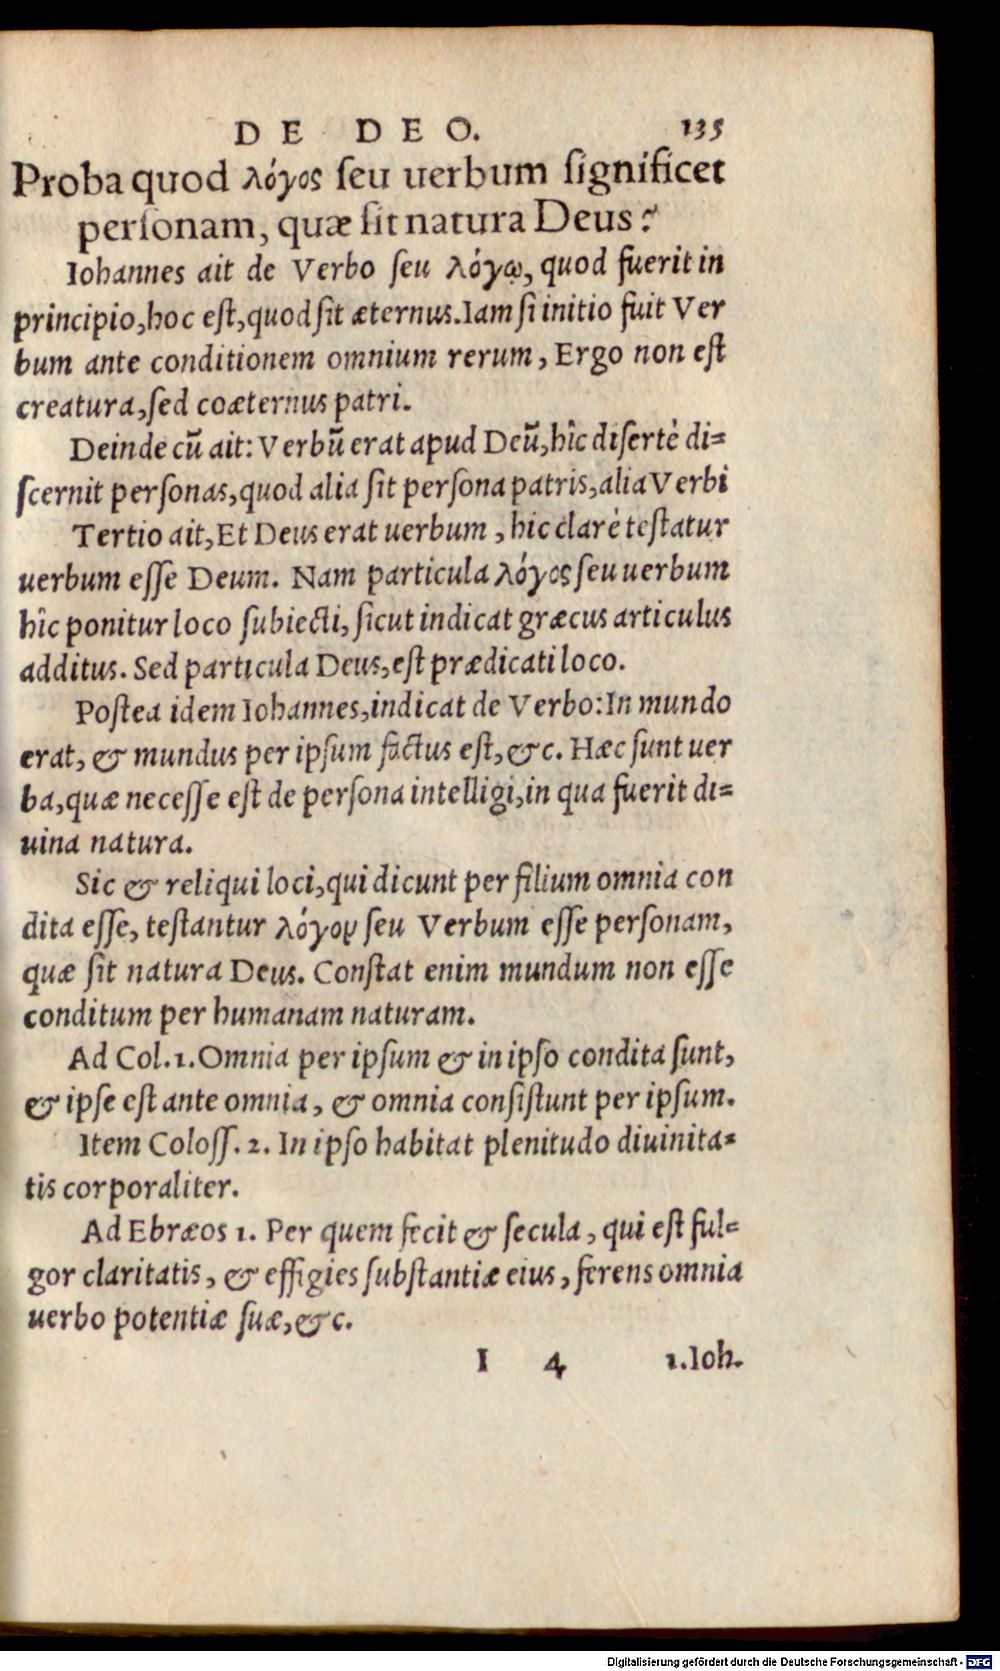 DE DEO. 135
Proba quod λόγος ſeu uerbum ſignificet
perſonam, quæ ſit natura Deus?
Iohannes ait de Verbo ſeu λόγῳ, quod fuerit in
principio, hoc eſt, quod ſit æternus. Iam ſi initio fuit Ver
bum ante conditionem omnium rerum, Ergo non eſt
creatura, ſed coæternus patri.
Deinde cũ ait: Verbũ erat apud Deũ, hîc diſertè di=
ſcernit perſonas, quod alia ſit perſona patris, alia Verbi
Tertio ait, Et Deus erat uerbum, hic clarè teſtatur
uerbum eſſe Deum. Nam particula λόγος ſeu uerbum
hîc ponitur loco ſubiecti, ſicut indicat græcus articulus
additus. Sed particula Deus, eſt prædicati loco.
Poſtea idem Iohannes, indicat de Verbo: In mundo
erat, & mundus per ipſum factus eſt, &c. Hæc ſunt uer
ba, quæ neceſſe eſt de perſona intelligi, in qua fuerit di=
uina natura.
Sic & reliqui loci, qui dicunt per filium omnia con
dita eſſe, teſtantur λόγον ſeu Verbum eſſe perſonam,
quæ ſit natura Deus. Conſtat enim mundum non eſſe
conditum per humanam naturam.
Ad Col. 1. Omnia per ipſum & in ipſo condita ſunt,
& ipſe eſt ante omnia, & omnia conſiſtunt per ipſum.
Item Coloſſ. 2. In ipſo habitat plenitudo diuinita=
tis corporaliter.
Ad Ebræos 1. Per quem fecit & ſecula, qui eſt ful=
gor claritatis, & effigies ſubſtantiæ eius, ferens omnia
uerbo potentiæ ſuæ, &c.
I 4 1. Ioh.
Digitalisierung gefördert durch die Deutsche Forschungsgemeinschaft - DFG